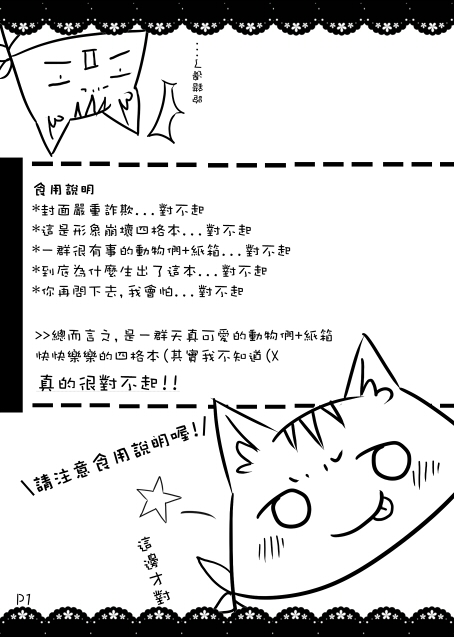 食用說明
*封面嚴重詐欺...對不起
*這是形象崩壞四格本...對不起
*一群很有事的動物們+紙箱...對不起
*到底為什麼生出了這本...對不起
*你再問下去,我會怕...對不起
>>總而言之,是一群天真可愛的動物們+紙箱
快快樂樂的四格本(其實我不知道(X
真的很對不起!!
\請注意食用說明喔!/
這邊才對
P1